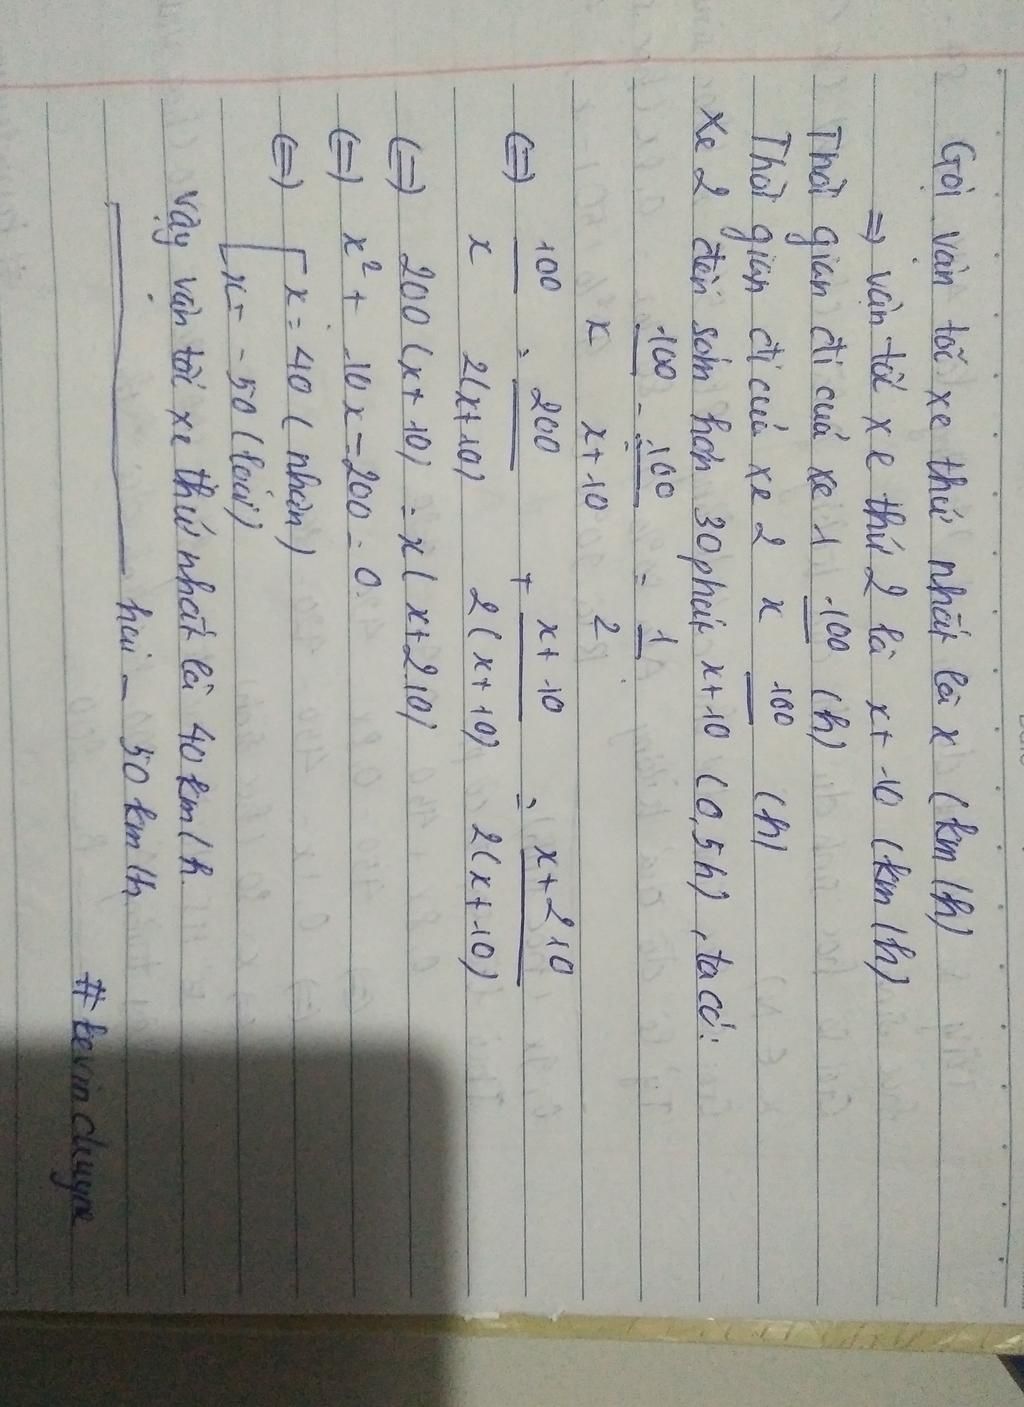 Gọi vận tốc xe thứ nhất là x (km/h)
=> vận tốc xe thứ 2 là x + 10 (km/h)
Thời gian đi của xe 1 100/x (h)
Thời gian đi của xe 2 100/x+10 (h)
Xe 2 đến sớm hơn 30 phút (0,5h), ta có:
100/x - 100/x+10 = 1/2
(=) 100/x = 200/2(x+10) + x+10/2(x+10) = x+210/2(x+10)
(=) 200(x+10) = x(x+210)
(=) x² + 10x - 200 = 0
(=) [ x = 40 (nhận)
[ x = - 50 (loại)
Vậy vận tốc xe thứ nhất là 40 km/h
hai - 50 km/h